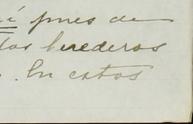 pues de
los herederos
. En estos